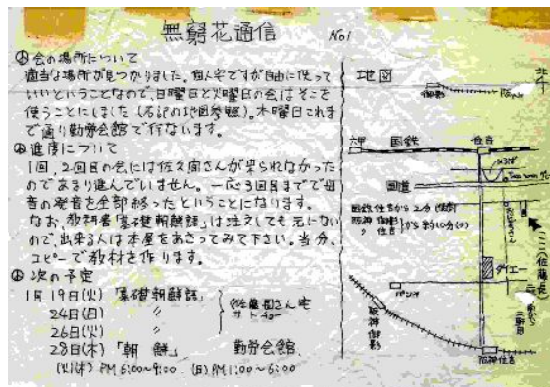 無窮花通信 No1
会の場所について
適当な場所が見つかりました。個人宅ですが自由に使って
いいということなので、日曜日と火曜日の会はそこを
使うことにしました(右記の地図参照)。木曜日これま
で通り勤労会館で行ないます。
進度について
1回、2回目の会には佐久間さんが来られなかった
のであまり進んでいません。一応3回目までで母
音の発音を全部終ったということになります。
なお、教科書「基礎朝鮮語」は注文しても元にない
ので、出来る人は本屋をあさってみて下さい。当分、
コピーで教材を作ります。
次の予定
1月19日(火)「基礎朝鮮語」
24日(日) 〃
26日(火) 〃
28日(木)「朝鮮」 勤労会館
(火)(木) PM 6:00~9:00 (日) PM 1:00~6:00
地図
北
御影
六甲 国鉄 住吉
国道
国鉄住吉から2分
阪神御影
〃 住吉 から約10分
ダイエー
ここ(佐藤宅)
阪神御影
阪神住吉